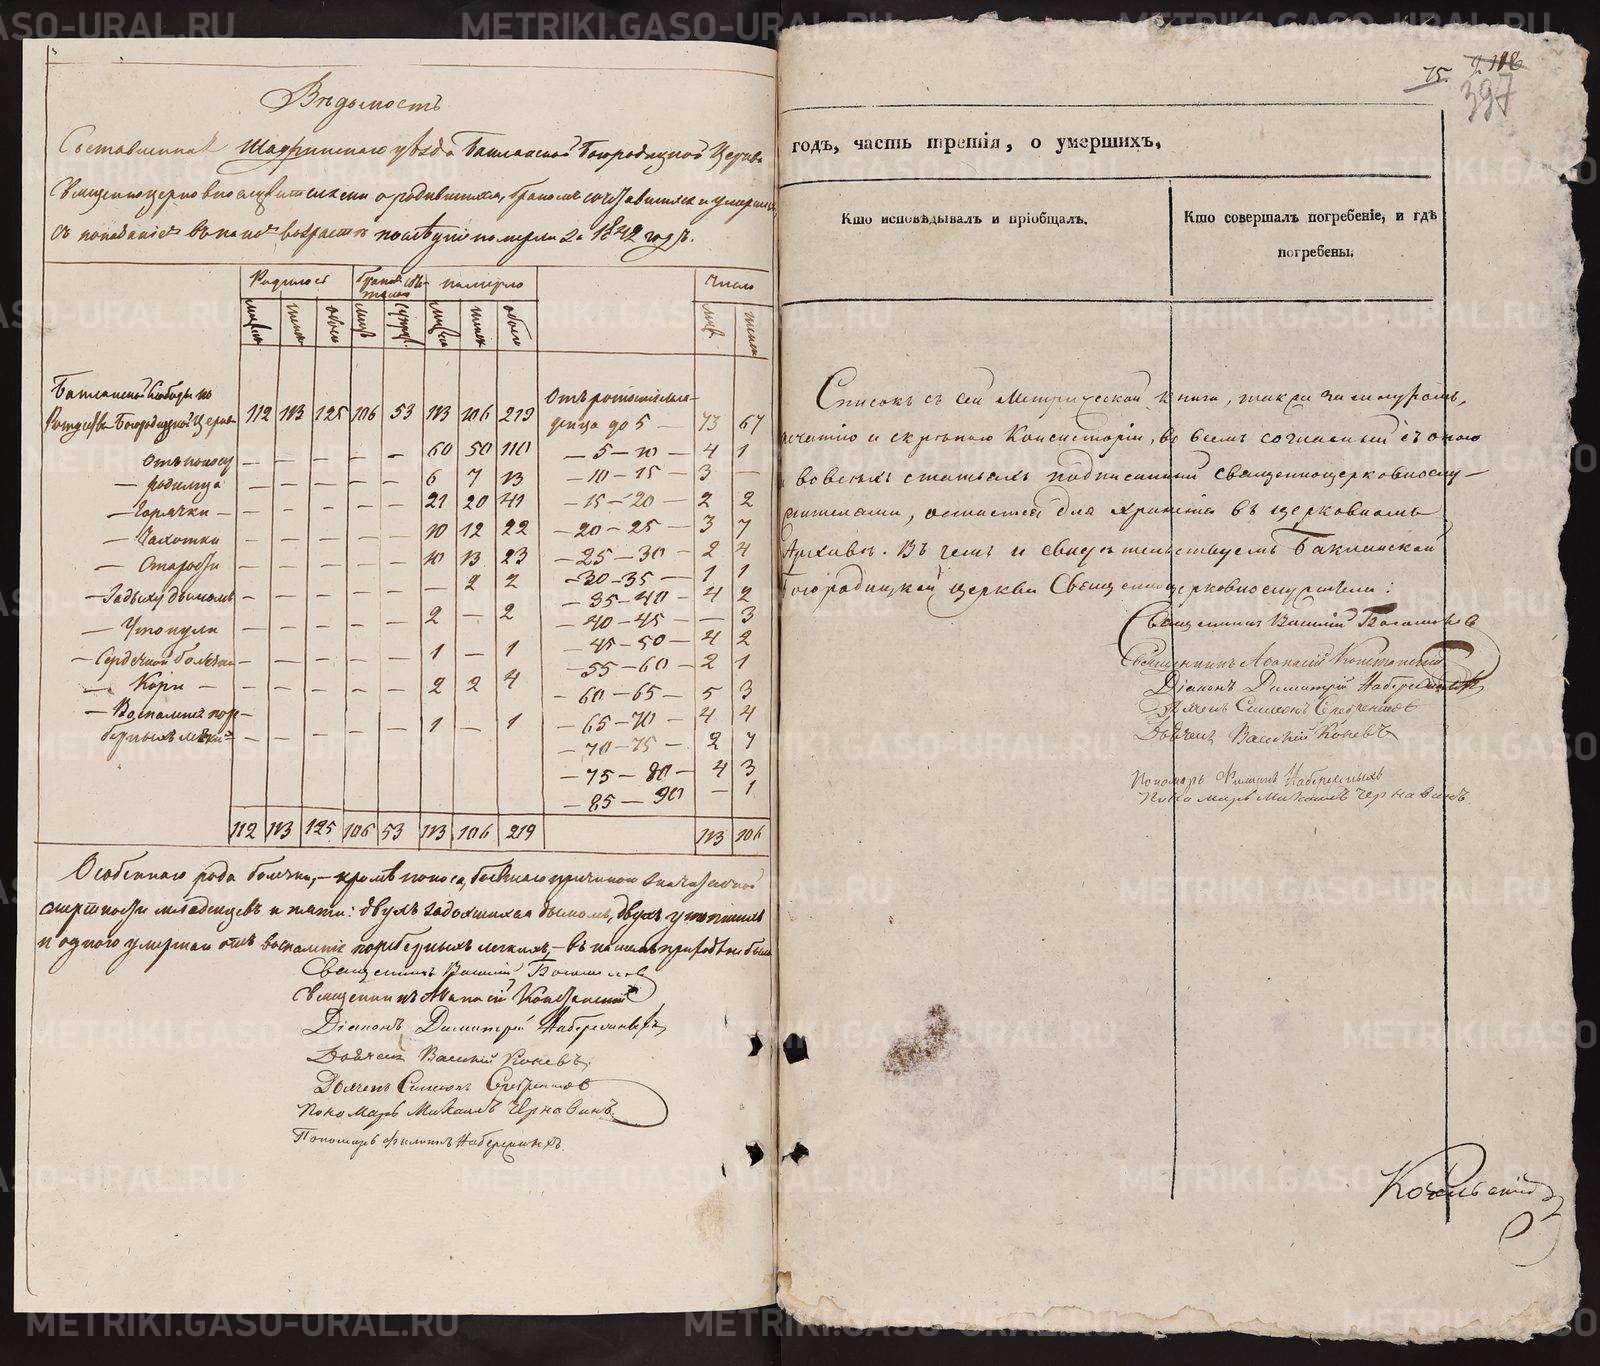 Вѣдомость
Составленная Шадринскаго уѣзда Бакланской Богородицкой Церкви
Священноцерковнослужителями о родившихся, бракомъ сочетавшихся и умершихъ,
съ показаніемъ въ какіе возрасты послѣдніе померли за 1842 годъ.
Родилось
Бракомъ
померло
Число
мужеска
женска
обоего
мужеска
женска
обоего
муж
женска
Бакланской Слободы по
Рождество-Богородицкой Церкви 112 113 125 106 53 113 106 219
Отъ рожденія мла-
денца до 5 — 73 67
Отъ поноса — — — — — 60 50 110
— 5 — 10 — 4 1
— родимца — — — — — 6 7 13
— 10 — 15 — 3 —
— Горячки — — — — — — 21 20 41
— 15 — 20 — 2 2
— Чахотки — — — — — 10 12 22
— 20 — 25 — 3 7
— Старости — — — — — 10 13 23
— 25 — 30 — 2 4
— Задыху дымомъ — — — — — — 2 2
— 30 — 35 — 1 1
— Утонули — — — — — 2 — 2
— 35 — 40 — 4 2
— 40 — 45 — — 3
— Сердечной болѣзни — — — — — 1 — 1
— 45 — 50 — 4 2
— 55 — 60 — 2 1
— Кори — — — — — — 2 2 4
— 60 — 65 — 5 3
— Воспаленіе пор-
берныхъ легкихъ — — — — — 1 — 1
— 65 — 70 — 4 4
— 70 — 75 — 2 7
— 75 — 80 — 4 3
— 85 — 90 — 1
112 113 125 106 53 113 106 219 113 106
Особеннаго рода болѣзни, — кромѣ поноса, бывшаго причиною значительной
смертности младенцевъ и пяти: двухъ задохшихся дымомъ, двухъ утопшихъ
и одного умершаго отъ воспаленіе порберныхъ легкихъ, — въ нашемъ приходѣ не было
Священникъ Василій
Священникъ Аѳанасій
Діаконъ Димитрій Набережныхъ
Дьячекъ Василій Коневъ
Дьячекъ Симеонъ Серебренниковъ
Пономарь Михаилъ Чернавинъ
Пономарь Филиппъ Набережныхъ
75.
397
годъ, часть третія, о умершихъ.
Кто исповѣдывалъ и пріобщалъ.
Кто совершалъ погребеніе, и гдѣ
погребены.
Списокъ съ сей Метрической книги, таковъ за шнуромъ,
печатію и скрѣпою Консисторіи, во всемъ согласный съ оною
и во всѣхъ статьяхъ подписанный священноцерковнослу-
жителями, оставленъ для храненія въ церковномъ
Архивѣ. Въ чемъ и свидѣтельствуемъ Бакланской
Богородицкой церкви Священноцерковнослужители:
Священникъ Василій
Священникъ Аѳанасій
Діаконъ Димитрій Набережныхъ
Дьячекъ Симеонъ Серебренниковъ
Дьячекъ Василій Коневъ
Пономарь Филиппъ Набережныхъ
Пономарь Михаилъ Чернавинъ
METRIKI.GASO-URAL.RU